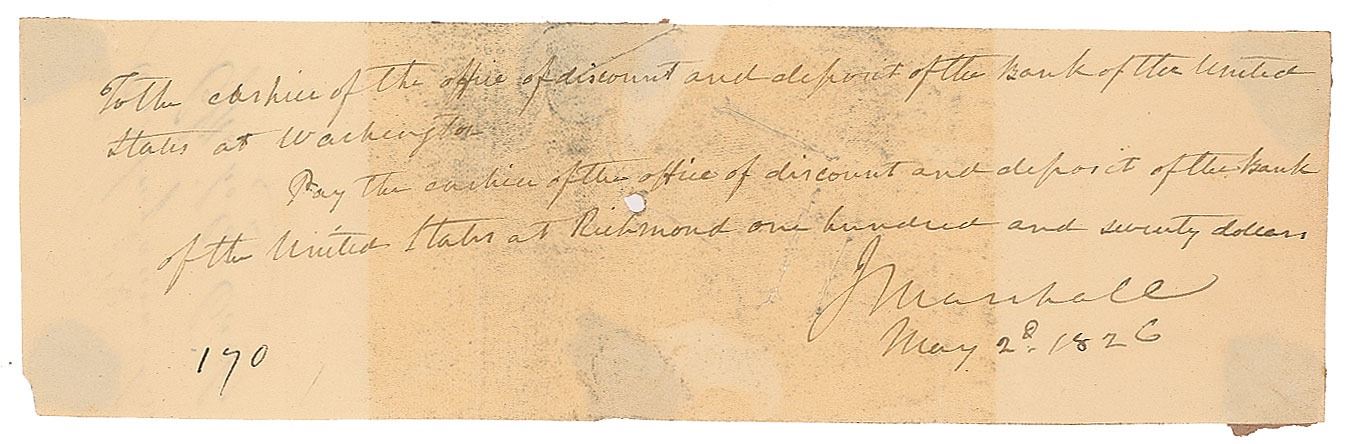 To the cashier of the office of discount and deposit of the Bank of the United
States at Washington
Pay the cashier of the office of discount and deposit of the Bank
of the United States at Richmond one hundred and seventy dollars
J Marshall
May 2d. 1826
170